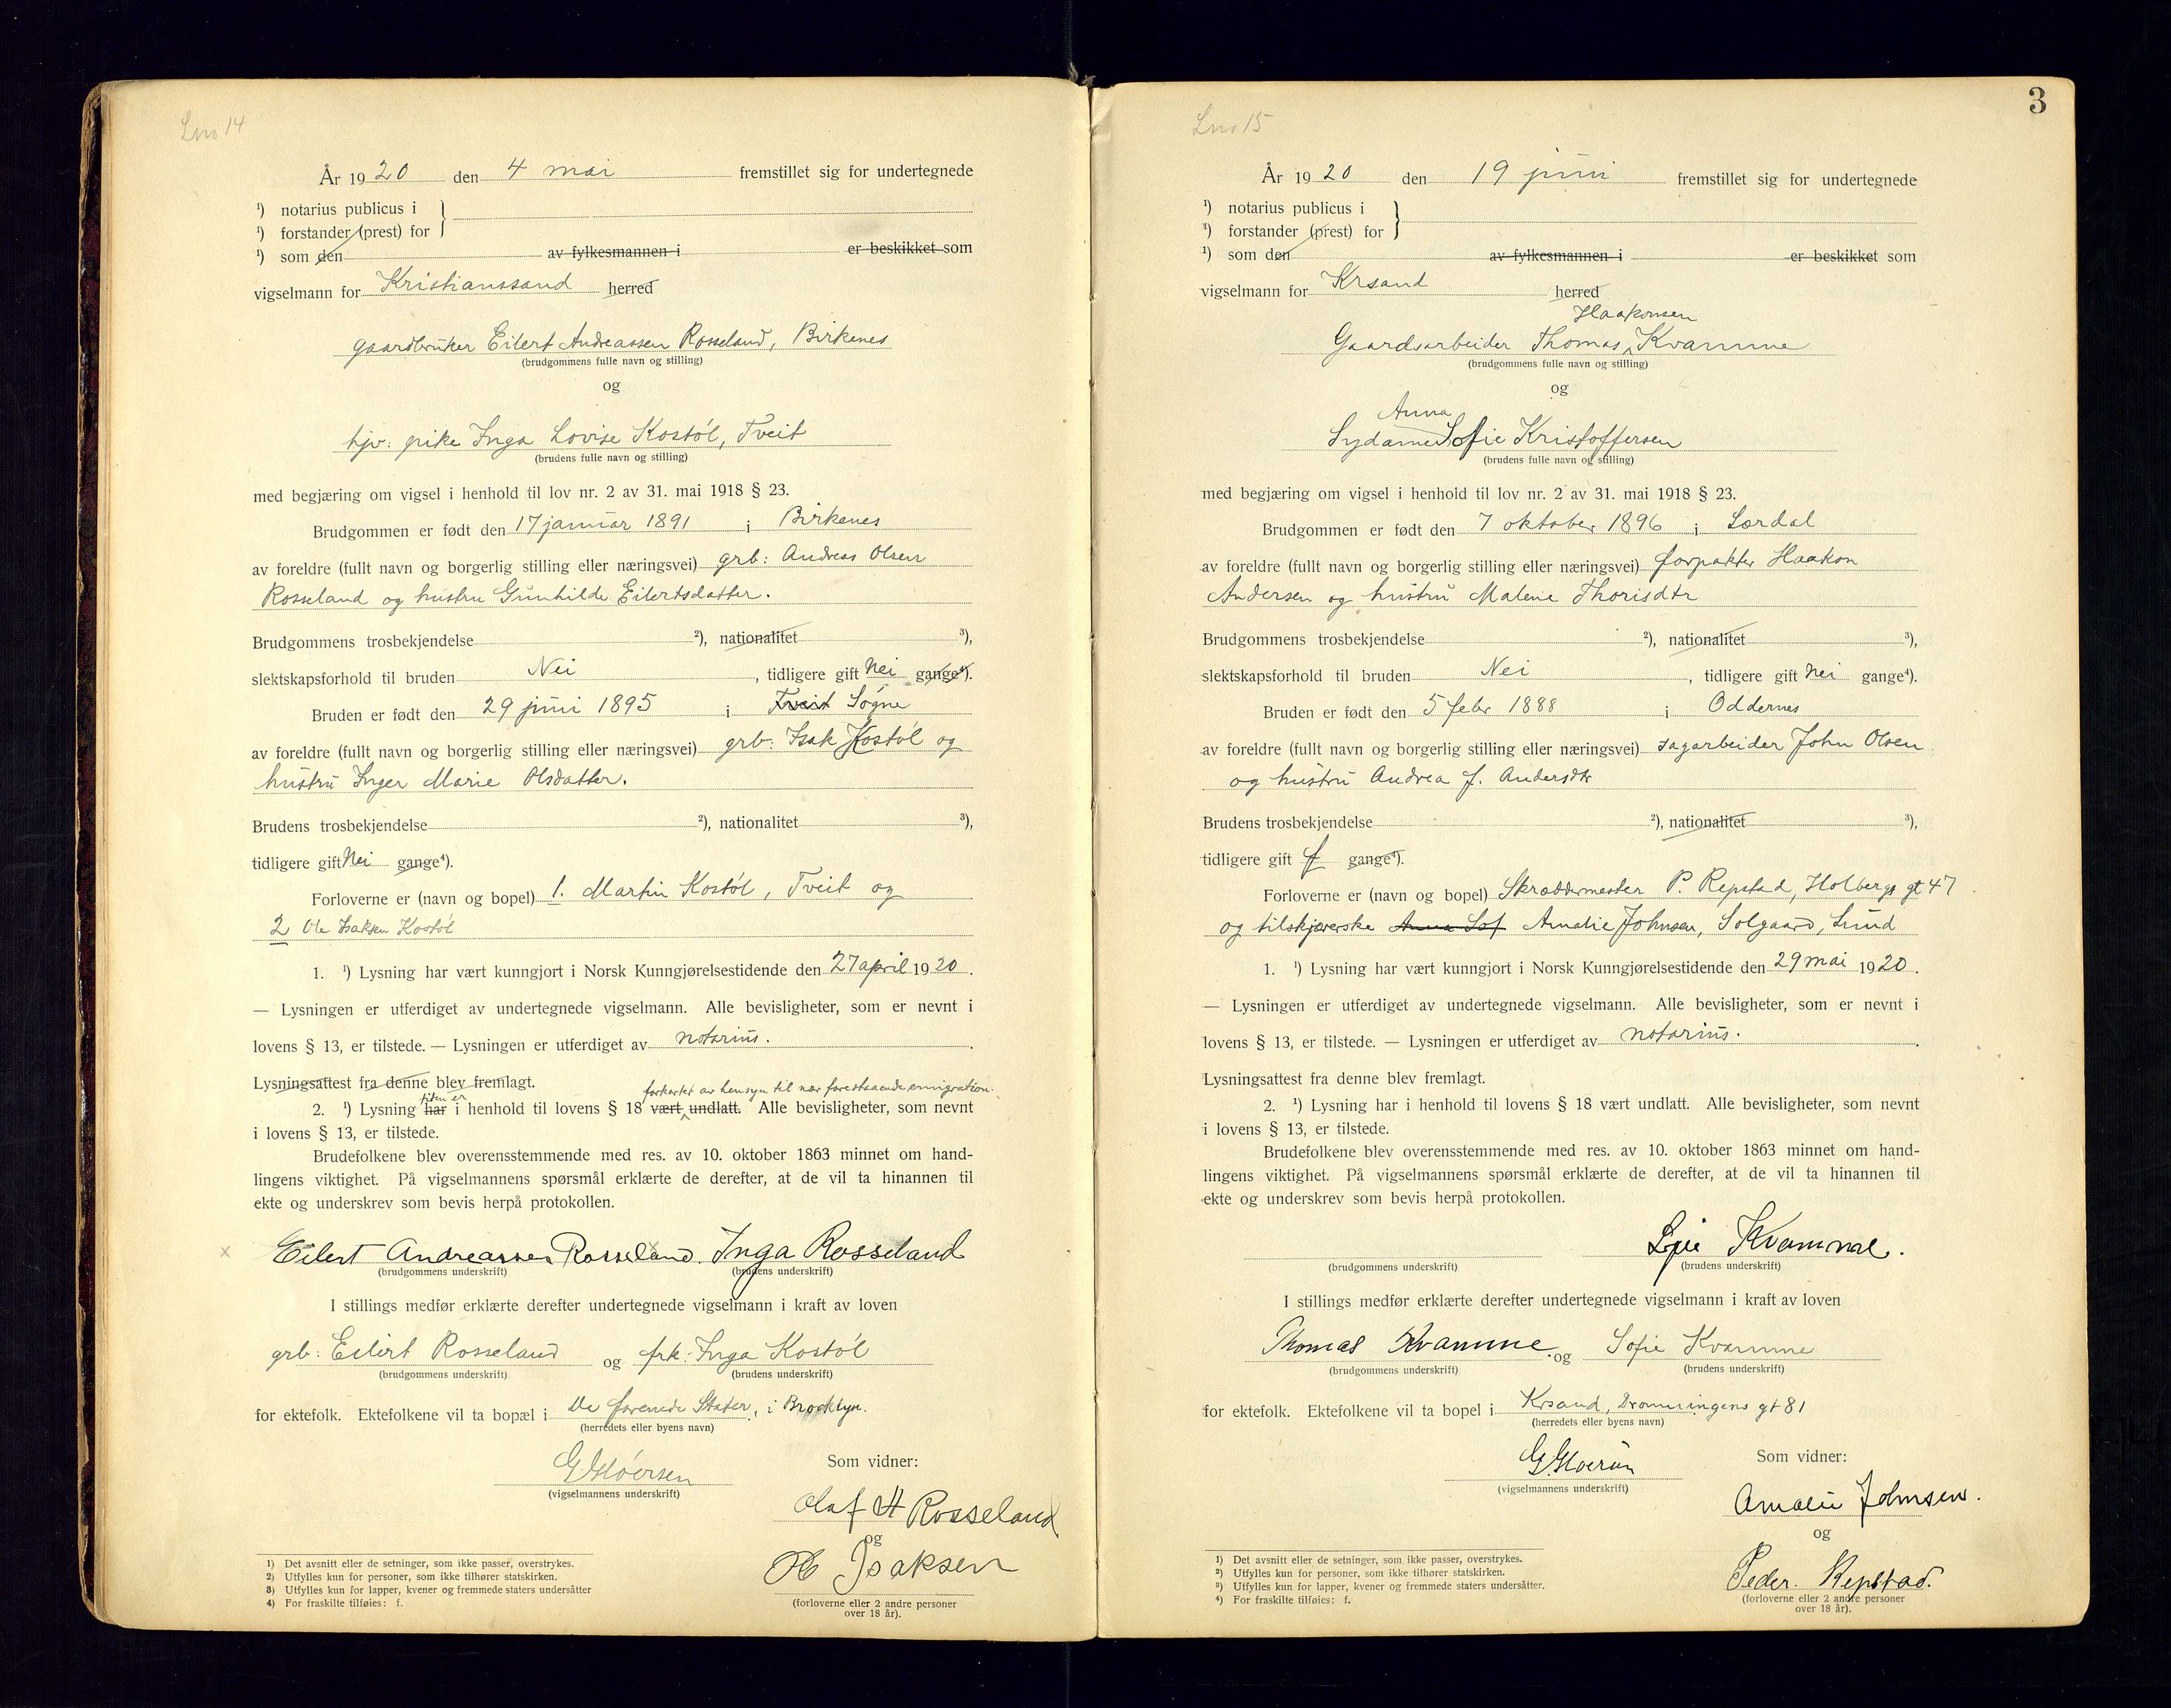 Lnr 14
År 1920 den 4 mai fremstillet sig for undertegnede
¹) notarius publicus i
¹) forstander (prest) for
¹) som den av fylkesmannen i er beskikket som
vigselmann for Kristianssand herred
gaardbruker Eilert Andreassen Rosseland, Birkenes
(brudgommens fulle navn og stilling)
og
hjv: pike Inga Lovise Kostøl, Tveit
(brudens fulle navn og stilling)
med begjæring om vigsel i henhold til lov nr. 2 av 31. mai 1918 § 23.
Brudgommen er født den 17 januar 1891 i Birkenes
av foreldre (fullt navn og borgerlig stilling eller næringsvei) grb: Andreas Olsen
Rosseland og hustru Gunhilde Eilertsdatter.
Brudgommens trosbekjendelse ²), nationalitet ³),
slektskapsforhold til bruden Nei, tidligere gift Nei gange⁴).
Bruden er født den 29 juni 1895 i Tveit Søgne
av foreldre (fullt navn og borgerlig stilling eller næringsvei) grb: Isak Kostøl og
hustru Inger Marie Olsdatter.
Brudens trosbekjendelse ²), nationalitet ³),
tidligere gift Nei gange⁴).
Forloverne er (navn og bopel) 1. Martin Kostøl, Tveit og
2 Ole Isaksen Kostøl
1. ¹) Lysning har vært kunngjort i Norsk Kunngjørelsestidende den 27 april 1920.
— Lysningen er utferdiget av undertegnede vigselmann. Alle bevisligheter, som er nevnt i
lovens § 13, er tilstede. — Lysningen er utferdiget av notarius.
Lysningsattest fra denne blev fremlagt.
tiden er forkortet av hensyn til nær forestaaende emigration.
2. ¹) Lysning har i henhold til lovens § 18 vært undlatt. Alle bevisligheter, som nevnt
i lovens § 13, er tilstede.
Brudefolkene blev overensstemmende med res. av 10. oktober 1863 minnet om hand-
lingens viktighet. På vigselmannens spørsmål erklærte de derefter, at de vil ta hinannen til
ekte og underskrev som bevis herpå protokollen.
x Eilert Andreassen Rosseland. Inga Rosseland
(brudgommens underskrift) (brudens underskrift)
I stillings medfør erklærte derefter undertegnede vigselmann i kraft av loven
grb: Eilert Rosseland og frk: Inga Kostøl
(brudgommens underskrift) (brudens underskrift)
for ektefolk. Ektefolkene vil ta bopæl i De forenede Stater, i Brooklyn.
(herredets eller byens navn)
G. Gløersen
(vigselmannens underskrift)
Som vidner:
Olaf H Rosseland
og
O Isaksen
(forloverne eller 2 andre personer
over 18 år).
1) Det avsnitt eller de setninger, som ikke passer, overstrykes.
2) Utfylles kun for personer, som ikke tilhører statskirken.
3) Utfylles kun for lapper, kvener og fremmede staters undersåtter
4) For fraskilte tilføies: f.
3
Lnr 15
År 1920 den 19 juni fremstillet sig for undertegnede
¹) notarius publicus i
¹) forstander (prest) for
¹) som den av fylkesmannen i er beskikket som
vigselmann for Krsand herred
Haakonsen
Gaardsarbeider Thomas Kvamme
(brudgommens fulle navn og stilling)
og
Anna
Sydame Sofie Kristoffersen
(brudens fulle navn og stilling)
med begjæring om vigsel i henhold til lov nr. 2 av 31. mai 1918 § 23.
Brudgommen er født den 7 oktober 1896 i Lærdal
av foreldre (fullt navn og borgerlig stilling eller næringsvei) forpakter Haakon
Andersen og hustru Malene Thorisdtr
Brudgommens trosbekjendelse ²), nationalitet ³),
slektskapsforhold til bruden Nei, tidligere gift Nei gange⁴).
Bruden er født den 5 febr 1888 i Oddernes
av foreldre (fullt navn og borgerlig stilling eller næringsvei) sagarbeider John Olsen
og hustru Andrea J. Andersdtr
Brudens trosbekjendelse ²), nationalitet ³),
tidligere gift f gange⁴).
Forloverne er (navn og bopel) Skræddermester P. Repstad, Holbergs gt 47
og tilskjærerske Anna Sof Amalie Johnsen, Solgaard, Lund
1. ¹) Lysning har vært kunngjort i Norsk Kunngjørelsestidende den 29 mai 1920.
— Lysningen er utferdiget av undertegnede vigselmann. Alle bevisligheter, som er nevnt i
lovens § 13, er tilstede. — Lysningen er utferdiget av notarius.
Lysningsattest fra denne blev fremlagt.
2. ¹) Lysning har i henhold til lovens § 18 vært undlatt. Alle bevisligheter, som nevnt
i lovens § 13, er tilstede.
Brudefolkene blev overensstemmende med res. av 10. oktober 1863 minnet om hand-
lingens viktighet. På vigselmannens spørsmål erklærte de derefter, at de vil ta hinannen til
ekte og underskrev som bevis herpå protokollen.
Kvamme.
(brudgommens underskrift) (brudens underskrift)
I stillings medfør erklærte derefter undertegnede vigselmann i kraft av loven
Thomas Kvamme. og Sofie Kvamme
(brudgommens underskrift) (brudens underskrift)
for ektefolk. Ektefolkene vil ta bopel i Krsand, Dronningens gt 81
(herredets eller byens navn)
G. Gløersen
(vigselmannens underskrift)
Som vidner:
Amalie Johnsen.
og
Peder. Repstad.
(forloverne eller 2 andre personer
over 18 år).
¹) Det avsnitt eller de setninger, som ikke passer, overstrykes.
²) Utfylles kun for personer, som ikke tilhører statskirken.
³) Utfylles kun for lapper, kvener og fremmede staters undersåtter.
⁴) For fraskilte tilføies: f.